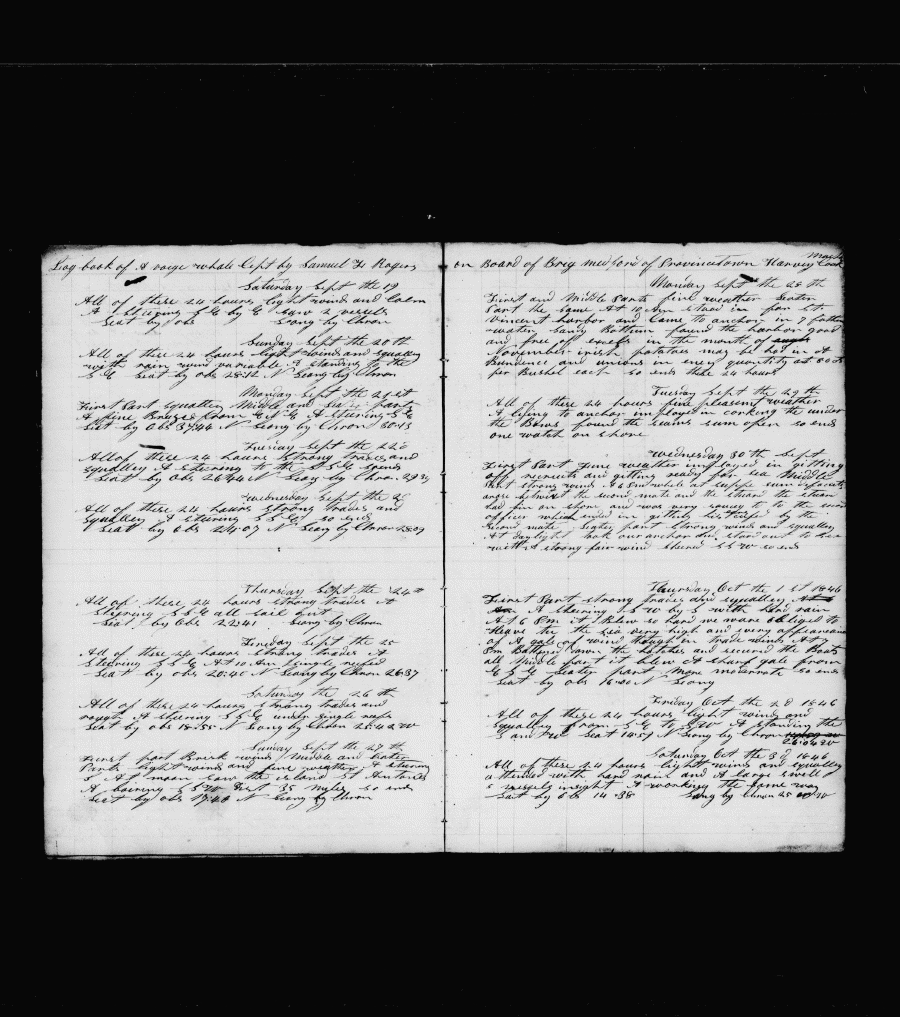 Log book of A voige whale Cept by Samuel H Rogers
Saturday Sept the 19
All of these 24 hours light winds and Calm
A stearing S E by E Saw 2 vessels
Leat by obs Leong by Chron
Sunday Sept the 20th
All of these 24 hours light winds and squally
with rain wind variable A standing to the
S E Leat by obs 28:12 N Leong by Chron
Monday Sept the 21st
First Part squalley Middle and Later Part
A fine Breeze from E N E A steering S E
Leat by Obs N Leong by Chron
Tuesday Sept the 22
All of these 24 hours strong trades and
squalley A stearing to the S S E ends
Leat by obs 26:44 N Leong by Chron
Wednesday Sept the
All of these 24 hours strong trades and
squalley A stearing S S E so ends
Leat by obs 24:07 N Leong by Chron
Thursday Sept the 24th
All of these 24 hours strong trades A
stearing S S E all sail out
Leat by Obs 2241 Leong by Chron
Friday Sept the 25
All of these 24 hours strong trades A
stearing S S E At 10 Am single reefed
Leat by obs 20:40 N Leong by Chron 26:37
Saturday the 26th
All of these 24 hours strong trades and
rougt A stearing S S E under single reefs
Leat by obs 18:55 N Leong by Chron
Sunday Sept the 27th
First part Brisk winds Middle and Later
Parts light winds and fine weather A stearing
S At noon saw the island St Antonio
A bairing S S W Dist 35 Miles so ends
Leat by obs 17:48 N Leong by Chron
on Board of Brig Medford of Provincetown Harvey Cook
Master
Monday Sept the 28th
First and Middle Parts fine weather Leater
Part the Same At 10 Am stood in for St
Vincent harbor and Came to anchor in 7 fathom
water Sandy Bottum found the harbor good
and free of in the month of
November irish potatoes may be had in A
bundence and unions in eney quantity at
per Bushel each so ends these 24 hours
Tuesday Sept the 29th
All of these 24 hours fine pleasent weather
A lying to anchor imployed in corking the under
the Bows found the seams sum open so ends
one watch on shore
Wednesday 30th Sept
First Part Fine weather imployed in gitting
off recruits and gitting ready for sea Middle
Part strong winds At 6 Pm while at supper sum
arose betwixt the second mate and the stuard the stuard
had bin on shore and was very to the second
officer which ended in a gitting by the
second mate Leater part strong winds and squalley
At daylight took our anchor and stood out to sea
with A strong fair wind steared S S W so ends
Thursday Oct the 1st 1846
First Part strong trades and squalley
A stearing S W by S with hard rain
At 6 Pm it Blew so hard we ware obliged to
Heave tu the Sea very high and every appearance
of A gale of wind though in trade winds At
Pm Battened down the hatches and secured the Boats
all Middle part it blew A sharp gale from
E S E Leater part More moderate so ends
Leat by obs 16:20 N Leong
Friday Oct the 2d 1846
All of these 24 hours light winds and
squalley from S E to S W A standing the
S and W Leat N Leong by Chron
26:04
Saturday Oct the 3d 1846
All of these 24 hours light winds and squalley
attended with hard rain and A large swell
5 vessels insight A working the same way
Leat by Obs 14:38 Leong by Chron 25